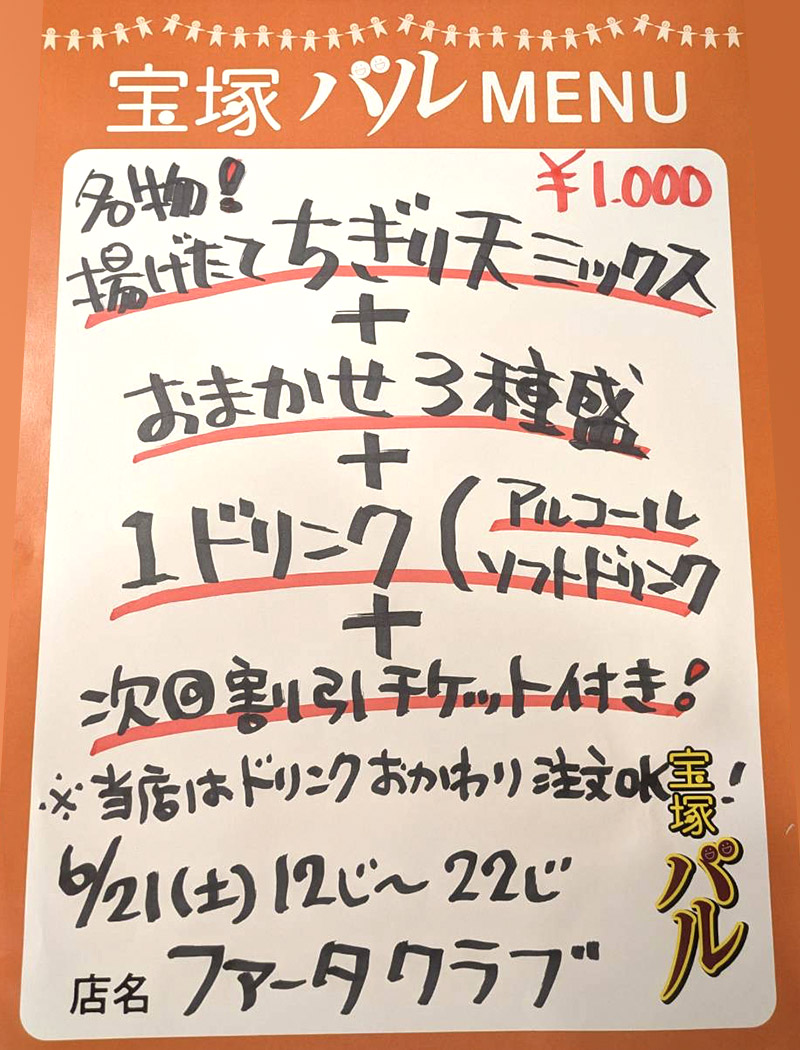 宝塚バルMENU
名物!
¥1.000
揚げたてちぎり天ミックス
+
おまかせ3種盛
+
1ドリンク(アルコール
ソフトドリンク
+
次回割引チケット付き!
※当店はドリンクおかわり注文OK!
6/21(土)12じ〜22じ
店名 ファータクラブ
宝塚
バル